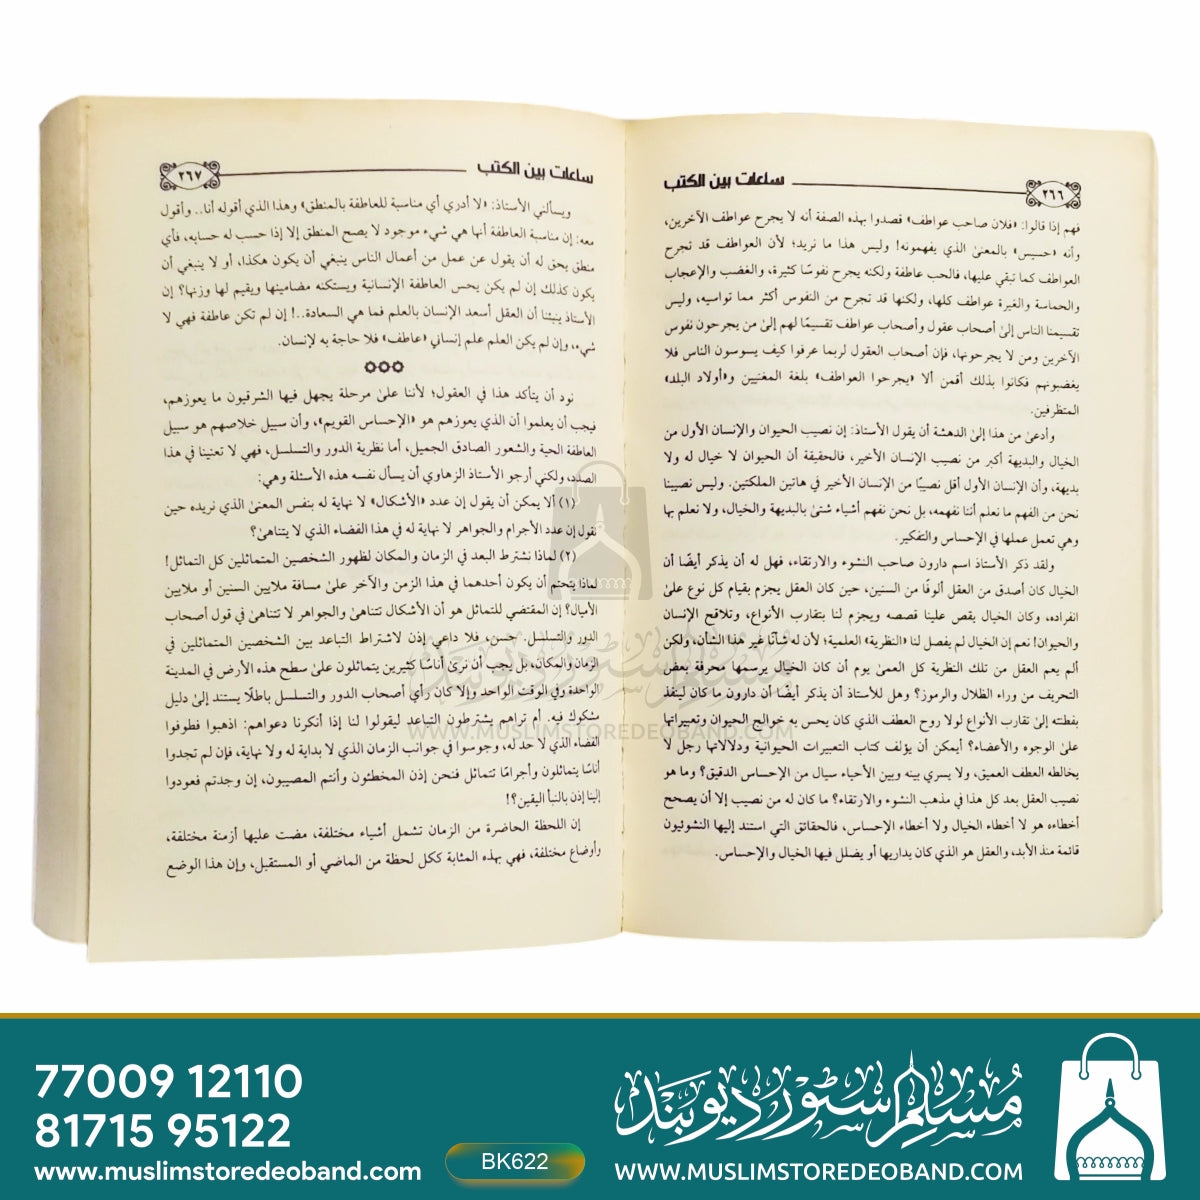 ساعات بين الكتب
٢٦٦
فهم إذا قالوا: «فلان صاحب عواطف» قصدوا بهذه الصفة أنه لا يجرح عواطف الآخرين،
وأنه «حسيس» بالمعنى الذي يفهمونه! وليس هذا ما نريد؛ لأن العواطف قد تجرح
العواطف كما تبقي عليها، فالحب عاطفة ولكنه يجرح نفوسًا كثيرة، والغضب والإعجاب
والحماسة والغيرة عواطف كلها، ولكنها قد تجرح من النفوس أكثر مما تواسيه، وليس
تقسيمنا الناس إلىٰ أصحاب عقول وأصحاب عواطف تقسيمًا لهم إلىٰ من يجرحون نفوس
الآخرين ومن لا يجرحونها، فإن أصحاب العقول لربما عرفوا كيف يسوسون الناس فلا
يغضبونهم فكانوا بذلك أقمن ألا «يجرحوا العواطف» بلغة المغنيين و«أولاد البلد»
المتظرفين.
وأدعىٰ من هذا إلىٰ الدهشة أن يقول الأستاذ: إن نصيب الحيوان والإنسان الأول من
الخيال والبديهة أكبر من نصيب الإنسان الأخير، فالحقيقة أن الحيوان لا خيال له ولا
بديهة، وأن الإنسان الأول أقل نصيبًا من الإنسان الأخير في هاتين الملكتين. وليس نصيبنا
نحن من الفهم ما نعلم أننا نفهمه، بل نحن نفهم أشياء شتىٰ بالبديهة والخيال، ولا نعلم بها
وهي تعمل عملها في الإحساس والتفكير.
ولقد ذكر الأستاذ اسم دارون صاحب النشوء والارتقاء، فهل له أن يذكر أيضًا أن
الخيال كان أصدق من العقل ألوفًا من السنين، حين كان العقل يجزم بقيام كل نوع علىٰ
انفراده، وكان الخيال يقص علينا قصصه ويجزم لنا بتقارب الأنواع، وتلاقح الإنسان
والحيوان! نعم إن الخيال لم يفصل لنا «النظرية» العلمية؛ لأن له شأنًا غير هذا الشأن، ولكن
ألم يعم العقل من تلك النظرية كل العمىٰ يوم أن كان الخيال يرسمها محرفة بعض
التحريف من وراء الظلال والرموز؟ وهل للأستاذ أن يذكر أيضًا أن دارون ما كان لينفذ
بفطنته إلىٰ تقارب الأنواع لولا روح العطف الذي كان يحس به خوالج الحيوان وتعبيراتها
علىٰ الوجوه والأعضاء؟ أيمكن أن يؤلف كتاب التعبيرات الحيوانية ودلالاتها رجل لا
يخالطه العطف العميق، ولا يسري بينه وبين الأحياء سيال من الإحساس الدقيق؟ وما هو
نصيب العقل بعد كل هذا في مذهب النشوء والارتقاء؟ ما كان له من نصيب إلا أن يصحح
أخطاءه هو لا أخطاء الخيال ولا أخطاء الإحساس، فالحقائق التي استند إليها النشوئيون
قائمة منذ الأبد، والعقل هو الذي كان يداريها أو يضلل فيها الخيال والإحساس.
ساعات بين الكتب
٢٦٧
ويسألني الأستاذ: «لا أدري أي مناسبة للعاطفة بالمنطق» وهذا الذي أقوله أنا.. وأقول
معه: إن مناسبة العاطفة أنها هي شيء موجود لا يصح المنطق إلا إذا حسب له حسابه، فأي
منطق يحق له أن يقول عن عمل من أعمال الناس ينبغي أن يكون هكذا، أو لا ينبغي أن
يكون كذلك إن لم يكن يحس العاطفة الإنسانية ويستكنه مضامينها ويقيم لها وزنها؟ إن
الأستاذ ينبئنا أن العقل أسعد الإنسان بالعلم فما هي السعادة..! إن لم تكن عاطفة فهي لا
شيء، وإن لم يكن العلم علم إنساني «عاطف» فلا حاجة به لإنسان.
نود أن يتأكد هذا في العقول؛ لأننا علىٰ مرحلة يجهل فيها الشرقيون ما يعوزهم،
فيجب أن يعلموا أن الذي يعوزهم هو «الإحساس القويم»، وأن سبيل خلاصهم هو سبيل
العاطفة الحية والشعور الصادق الجميل، أما نظرية الدور والتسلسل، فهي لا تعنينا في هذا
الصدد، ولكني أرجو الأستاذ الزهاوي أن يسأل نفسه هذه الأسئلة وهي:
(١) ألا يمكن أن يقول إن عدد «الأشكال» لا نهاية له بنفس المعنىٰ الذي نريده حين
نقول إن عدد الأجرام والجواهر لا نهاية له في هذا الفضاء الذي لا يتناهىٰ؟
(٢) لماذا نشترط البعد في الزمان والمكان لظهور الشخصين المتماثلين كل التماثل!
لماذا يتحتم أن يكون أحدهما في هذا الزمن والآخر علىٰ مسافة ملايين السنين أو ملايين
الأميال؟ إن المقتضي للتماثل هو أن الأشكال تتناهىٰ والجواهر لا تتناهىٰ في قول أصحاب
الدور والتسلسل. حسن، فلا داعي إذن لاشتراط التباعد بين الشخصين المتماثلين في
الزمان والمكان، بل يجب أن نرىٰ أناسًا كثيرين يتماثلون علىٰ سطح هذه الأرض في المدينة
الواحدة وفي الوقت الواحد وإلا كان رأي أصحاب الدور والتسلسل باطلًا يستند إلىٰ دليل
مشكوك فيه. أم تراهم يشترطون التباعد ليقولوا لنا إذا أنكرنا دعواهم: اذهبوا فطوفوا
الفضاء الذي لا حد له، وجوسوا في جوانب الزمان الذي لا بداية له ولا نهاية، فإن لم تجدوا
أناسًا يتماثلون وأجرامًا تتماثل فنحن إذن المخطئون وأنتم المصيبون، إن وجدتم فعودوا
إلينا إذن بالنبأ اليقين؟!
إن اللحظة الحاضرة من الزمان تشمل أشياء مختلفة، مضت عليها أزمنة مختلفة،
وأوضاع مختلفة، فهي بهذه المثابة ككل لحظة من الماضي أو المستقبل، وإن هذا الوضع
مسلم سٹور دیوبند
WWW.MUSLIMSTOREDEOBAND.COM
77009 12110
81715 95122
www.muslimstoredeoband.com
BK622
مسلم سٹور دیوبند
WWW.MUSLIMSTOREDEOBAND.COM